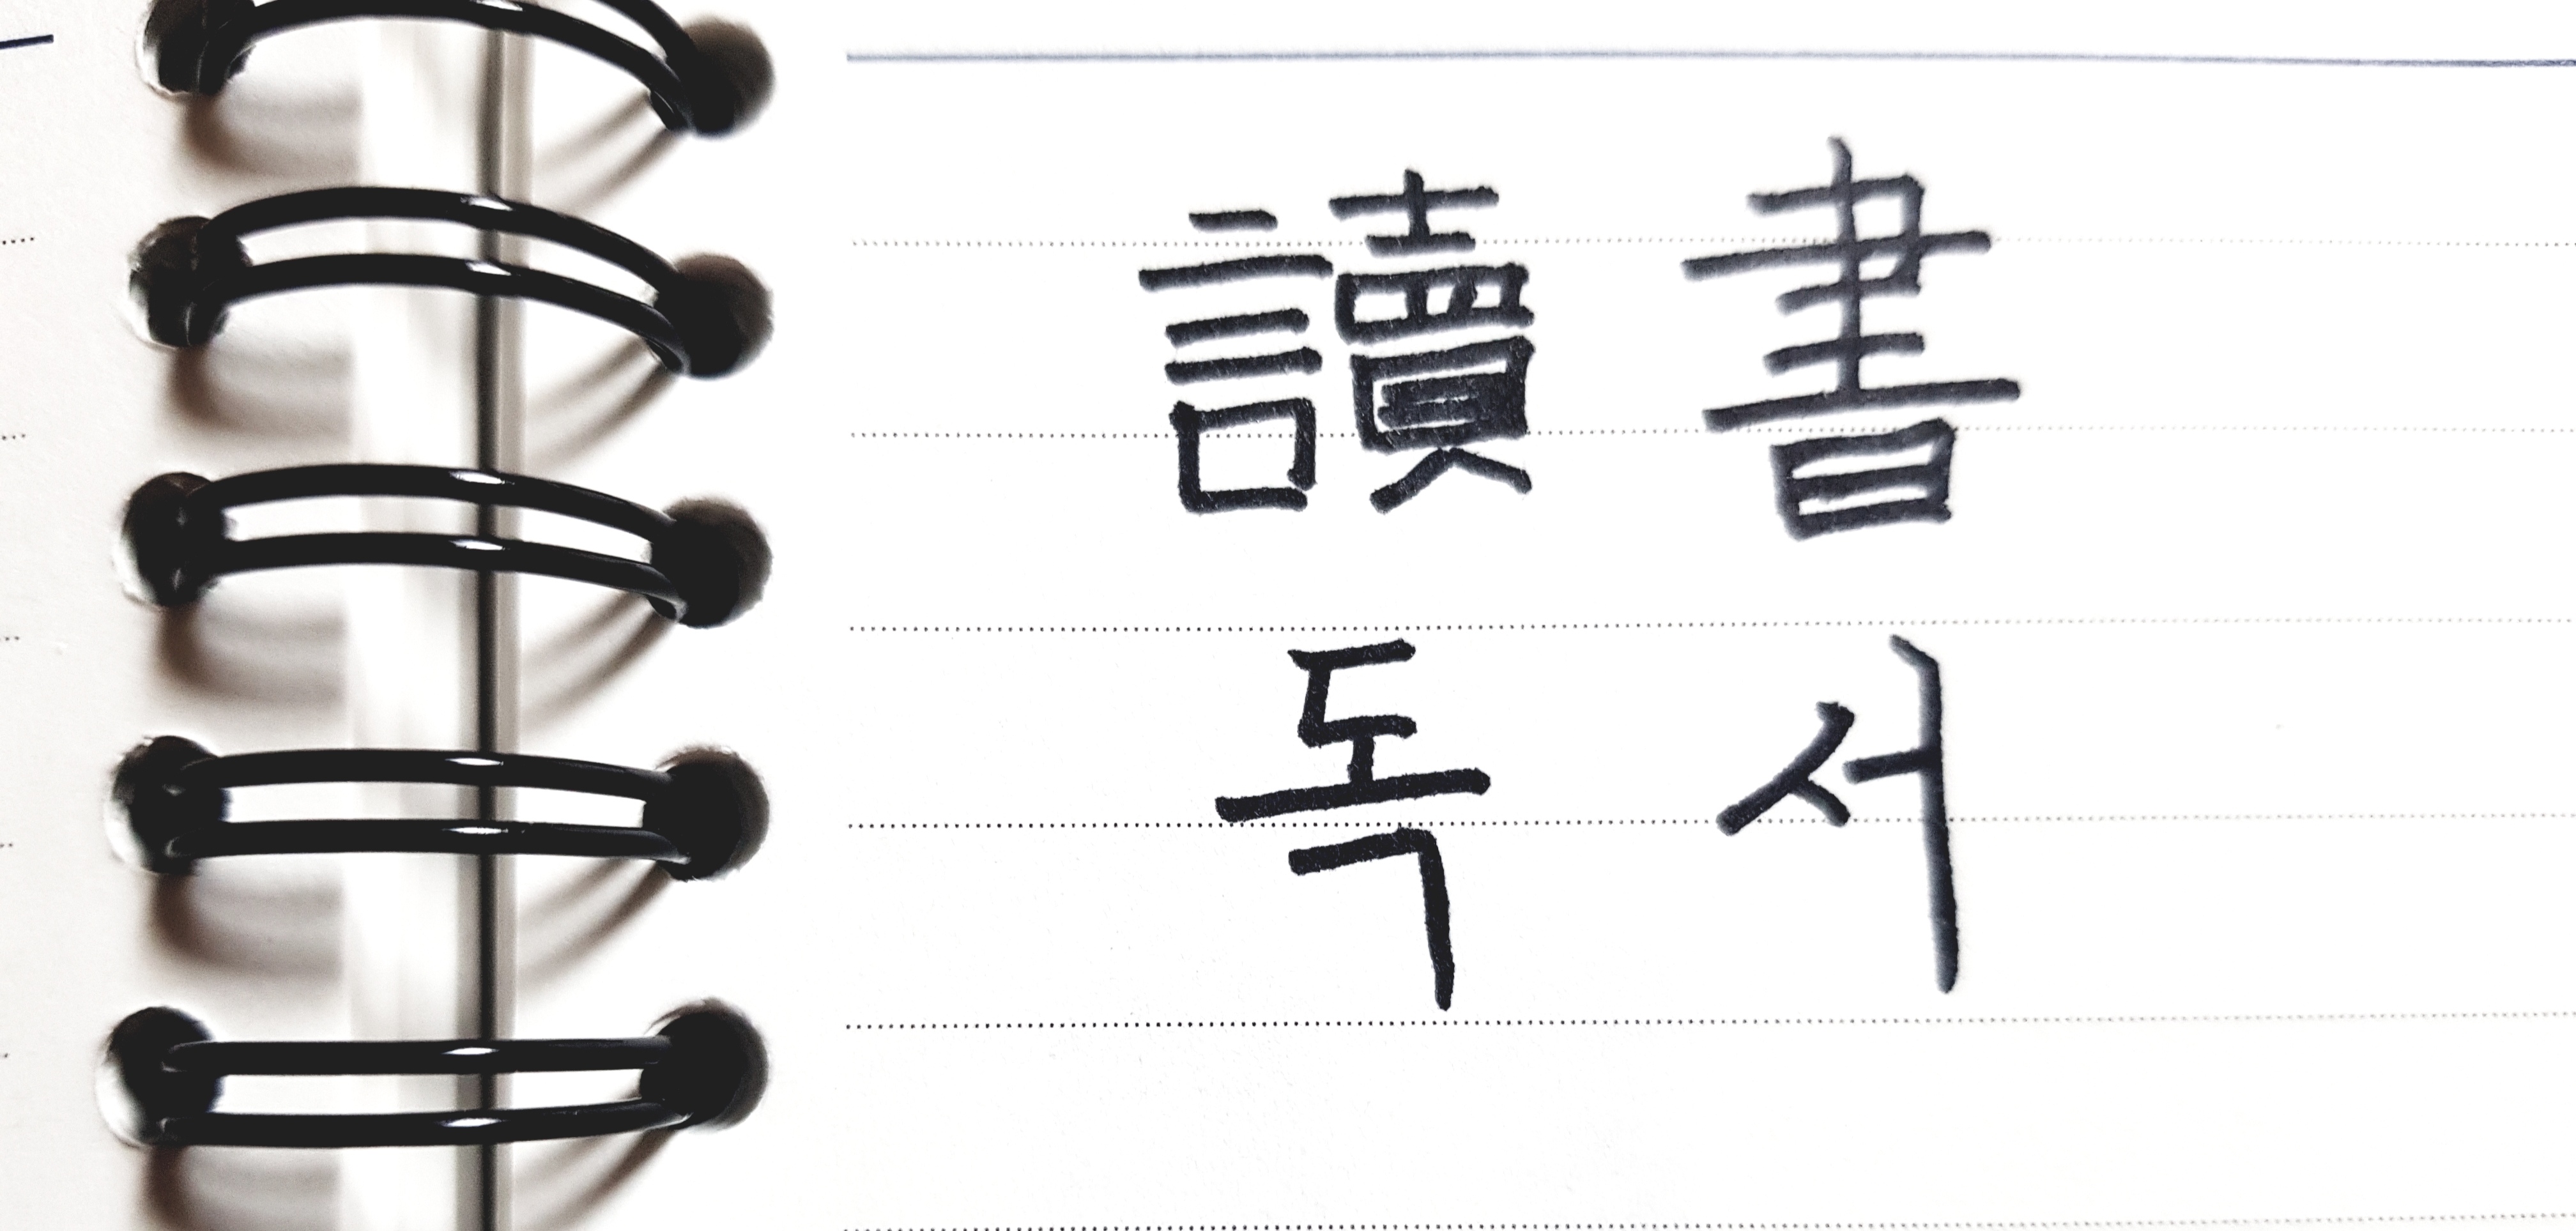 讀書
독서